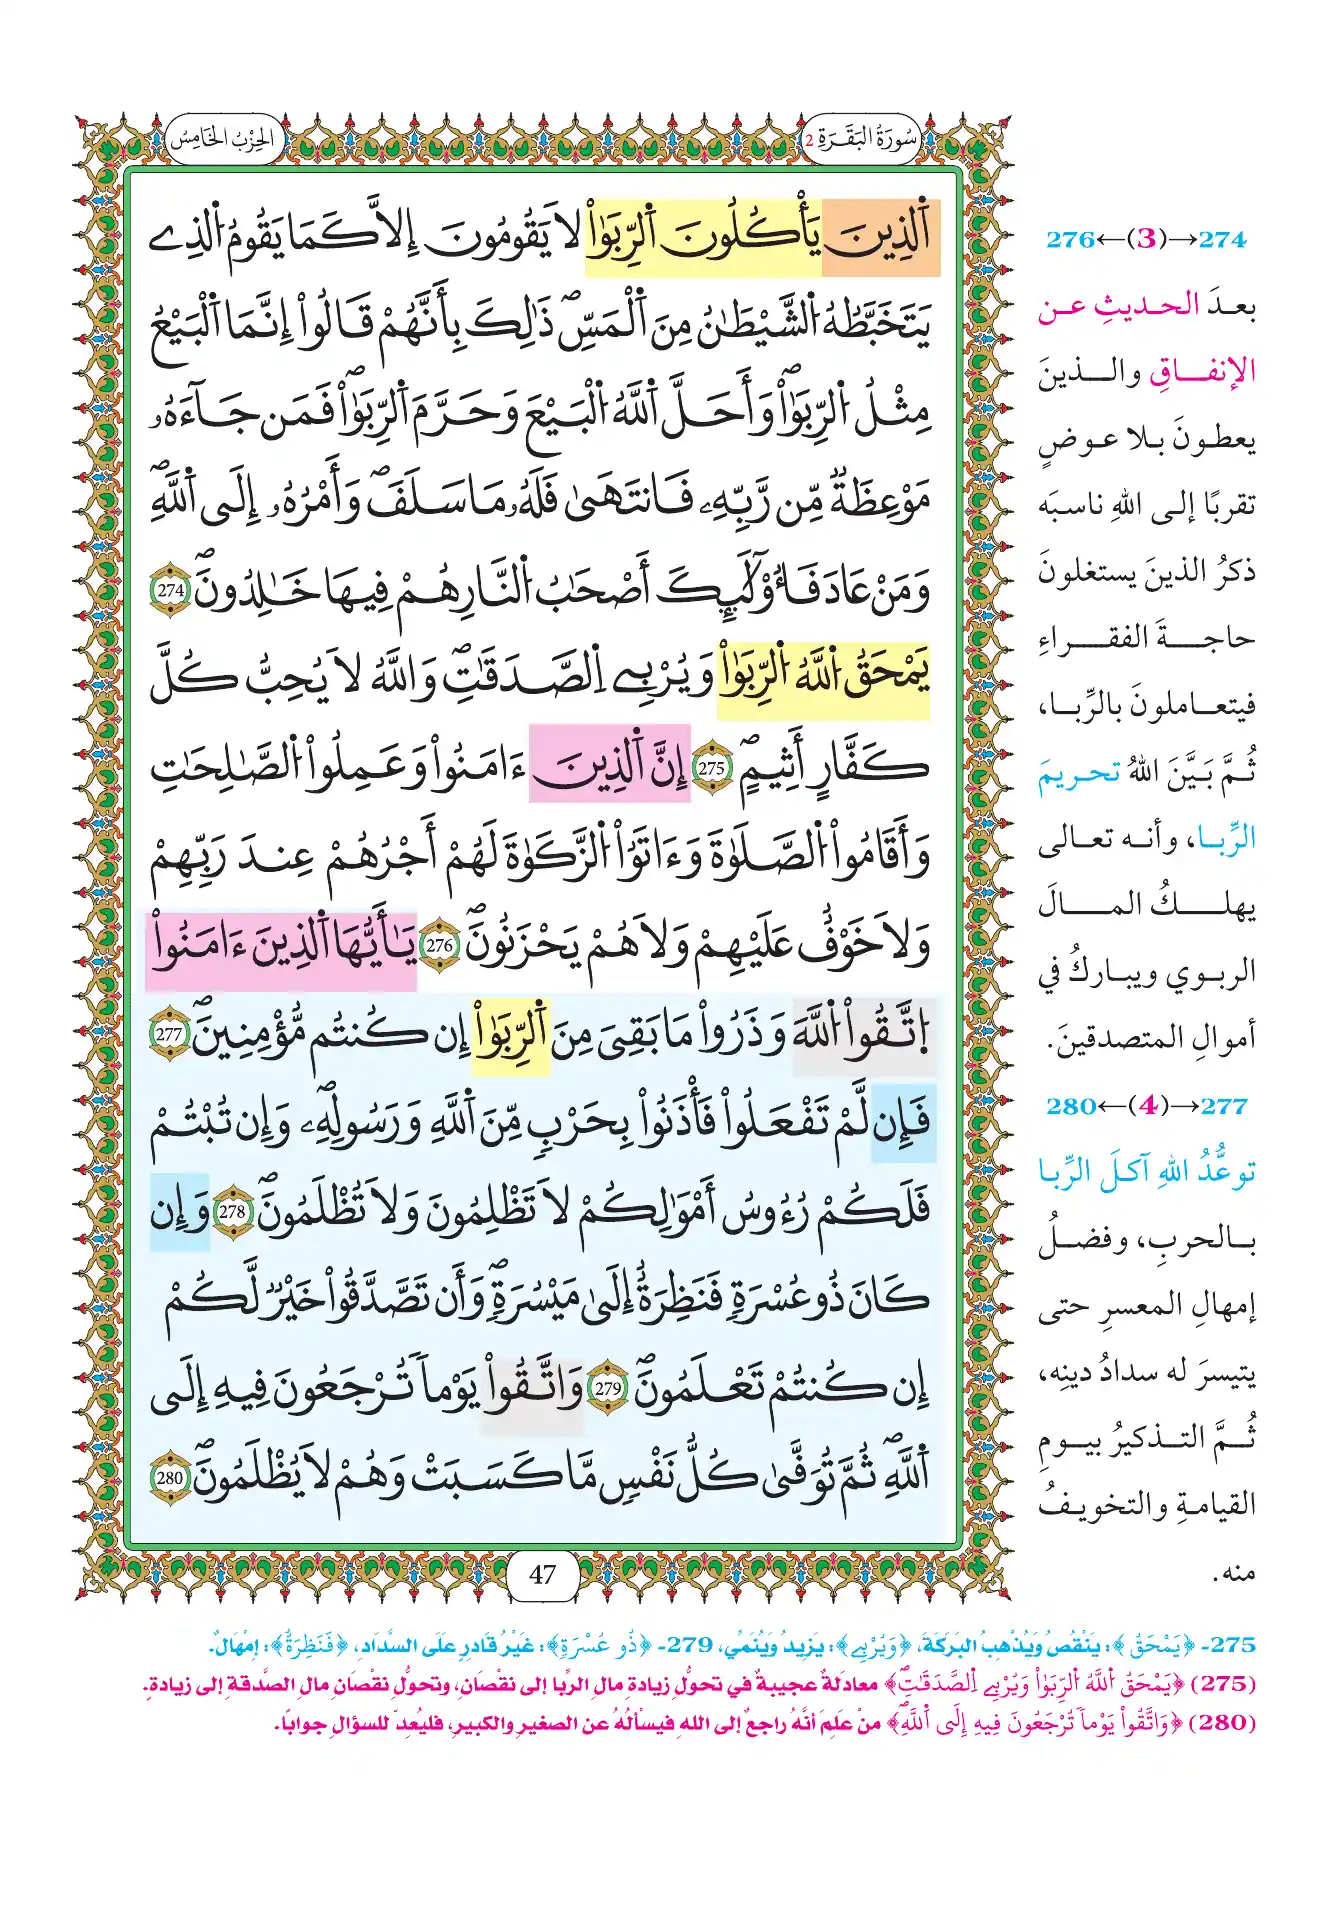 سُورَةُ البَقَرَةِ 2
الحِزْبُ الخَامِسُ
اَ۬لذِينَ يَأْكُلُونَ اَ۬لرِّبَوٰاْ لَا يَقُومُونَ إِلَّا كَمَا يَقُومُ اُ۬لذِے
يَتَخَبَّطُهُ اُ۬لشَّيْطَٰنُ مِنَ اَ۬لْمَسِّۖ ذَٰلِكَ بِأَنَّهُمْ قَالُوٓاْ إِنَّمَا اَ۬لْبَيْعُ
مِثْلُ اُ۬لرِّبَوٰاْۖ وَأَحَلَّ اَ۬للَّهُ اُ۬لْبَيْعَ وَحَرَّمَ اَ۬لرِّبَوٰاْۖ فَمَن جَآءَهُۥ
مَوْعِظَةٞ مِّن رَّبِّهِۦ فَانتَهَىٰ فَلَهُۥ مَا سَلَفَۖ وَأَمْرُهُۥٓ إِلَى اَ۬للَّهِۖ
وَمَنْ عَادَ فَأُوْلَٰٓئِكَ أَصْحَٰبُ اُ۬لنَّارِ هُمْ فِيهَا خَٰلِدُونَۖ 274
يَمْحَقُ اُ۬للَّهُ اُ۬لرِّبَوٰاْ وَيُرْبِے اِ۬لصَّدَقَٰتِۖ وَاللَّهُ لَا يُحِبُّ كُلَّ
كَفَّارٍ أَثِيمٍۖ 275 إِنَّ اَ۬لذِينَ ءَامَنُواْ وَعَمِلُواْ اُ۬لصَّٰلِحَٰتِ
وَأَقَامُواْ اُ۬لصَّلَوٰةَ وَءَاتَوُاْ اُ۬لزَّكَوٰةَ لَهُمْ أَجْرُهُمْ عِندَ رَبِّهِمْ
وَلَا خَوْفٌ عَلَيْهِمْ وَلَا هُمْ يَحْزَنُونَۖ 276 يَٰٓأَيُّهَا اَ۬لذِينَ ءَامَنُواْ
اُ۪تَّقُواْ اُ۬للَّهَ وَذَرُواْ مَا بَقِيَ مِنَ اَ۬لرِّبَوٰٓاْ إِن كُنتُم مُّؤْمِنِينَۖ 277
فَإِن لَّمْ تَفْعَلُواْ فَأْذَنُواْ بِحَرْبٖ مِّنَ اَ۬للَّهِ وَرَسُولِهِۦۖ وَإِن تُبْتُمْ
فَلَكُمْ رُءُوسُ أَمْوَٰلِكُمْ لَا تَظْلِمُونَ وَلَا تُظْلَمُونَۖ 278 وَإِن
كَانَ ذُو عُسْرَةٖ فَنَظِرَةٌ إِلَىٰ مَيْسُرَةٖۖ وَأَن تَصَّدَّقُواْ خَيْرٞ لَّكُمْ
إِن كُنتُمْ تَعْلَمُونَۖ 279 وَاتَّقُواْ يَوْماٗ تُرْجَعُونَ فِيهِ إِلَى
اَ۬للَّهِۖ ثُمَّ تُوَفَّىٰ كُلُّ نَفْسٖ مَّا كَسَبَتْ وَهُمْ لَا يُظْلَمُونَۖ 280
47
274→(3)←276
بعدَ الحديثِ عن
الإنفاقِ والذينَ
يعطونَ بلا عوضٍ
تقربًا إلى اللهِ ناسبَه
ذكرُ الذينَ يستغلونَ
حاجةَ الفقراءِ
فيتعاملونَ بالرِّبا،
ثُمَّ بَيَّنَ اللهُ تحريمَ
الرِّبا، وأنه تعالى
يهلكُ المالَ
الربوي ويباركُ في
أموالِ المتصدقينَ.
277→(4)←280
توعُّدُ اللهِ آكلَ الرِّبا
بالحربِ، وفضلُ
إمهالِ المعسرِ حتى
يتيسرَ له سدادُ دينِه،
ثُمَّ التذكيرُ بيومِ
القيامةِ والتخويفُ
منه.
275- ﴿يَمْحَقُ﴾: يَنْقُصُ وَيُذْهِبُ البَرَكَةَ، ﴿وَيُرْبِے﴾: يَزِيدُ وَيُنَمِّي، 279- ﴿ذُو عُسْرَةٖ﴾: غَيْرُ قَادِرٍ عَلَى السَّدَادِ، ﴿فَنَظِرَةٌ﴾: إِمْهَالٌ.
(275) ﴿يَمْحَقُ اُ۬للَّهُ اُ۬لرِّبَوٰاْ وَيُرْبِے اِ۬لصَّدَقَٰتِۖ﴾ معادَلةٌ عجيبةٌ في تحوُّلِ زيادةِ مالِ الرِّبا إلى نقْصَانٍ، وتحوُّلِ نقْصَانِ مالِ الصَّدقة إلى زيادةٍ.
(280) ﴿وَاتَّقُواْ يَوْماٗ تُرْجَعُونَ فِيهِ إِلَى اَ۬للَّهِۖ﴾ منْ علِمَ أنَّهُ راجعٌ إلى الله فيسْألُهُ عن الصغيرِ والكبيرِ، فليُعِدّ للسؤالِ جوابًا.